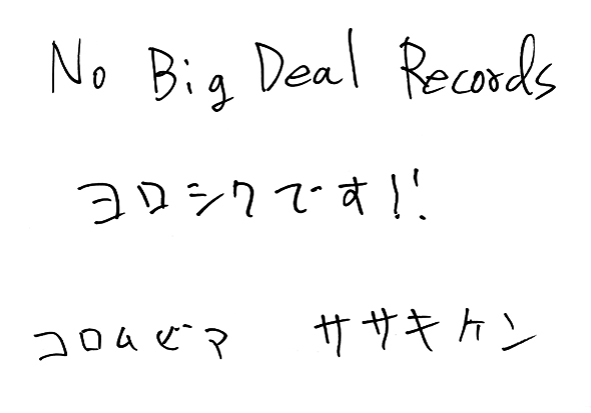 No Big Deal Records
ヨロシクです!!
コロムビア ササキケン